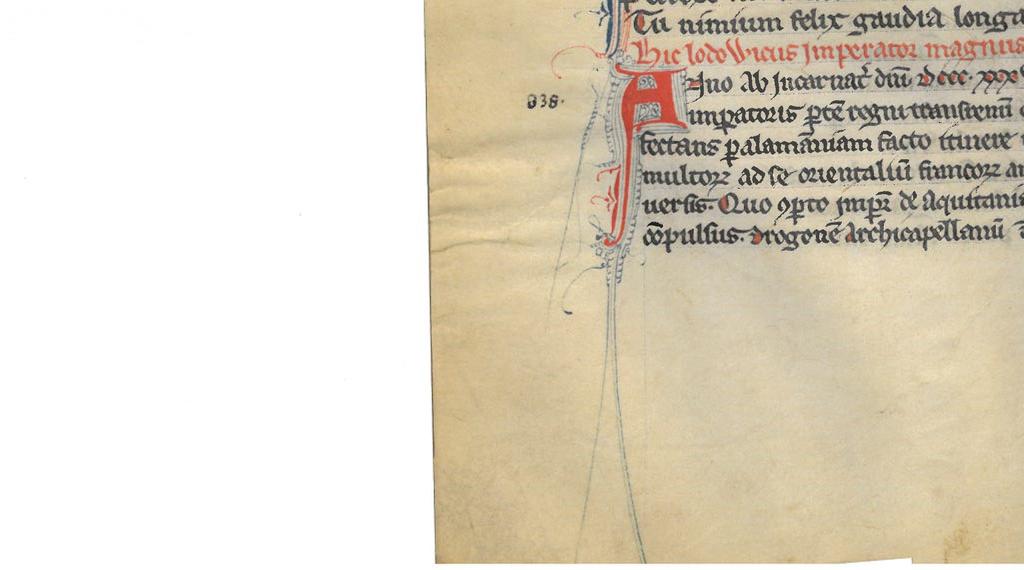 Tu nimium felix gaudia longa
Hic lodowicus Imperator magnus
838.
Anno Ab Incarnat̄ dn̄i. dccc. xxx
imꝑatoris ꝑtē regni transrenū
fectans ꝑ alamāniam facto itinere
multoꝝ ad se orientaliū francoꝝ
uersis. Quo ꝯꝑto jmꝑr̄ de Aquitani
cōpulsus. drogonē Archicapellanū